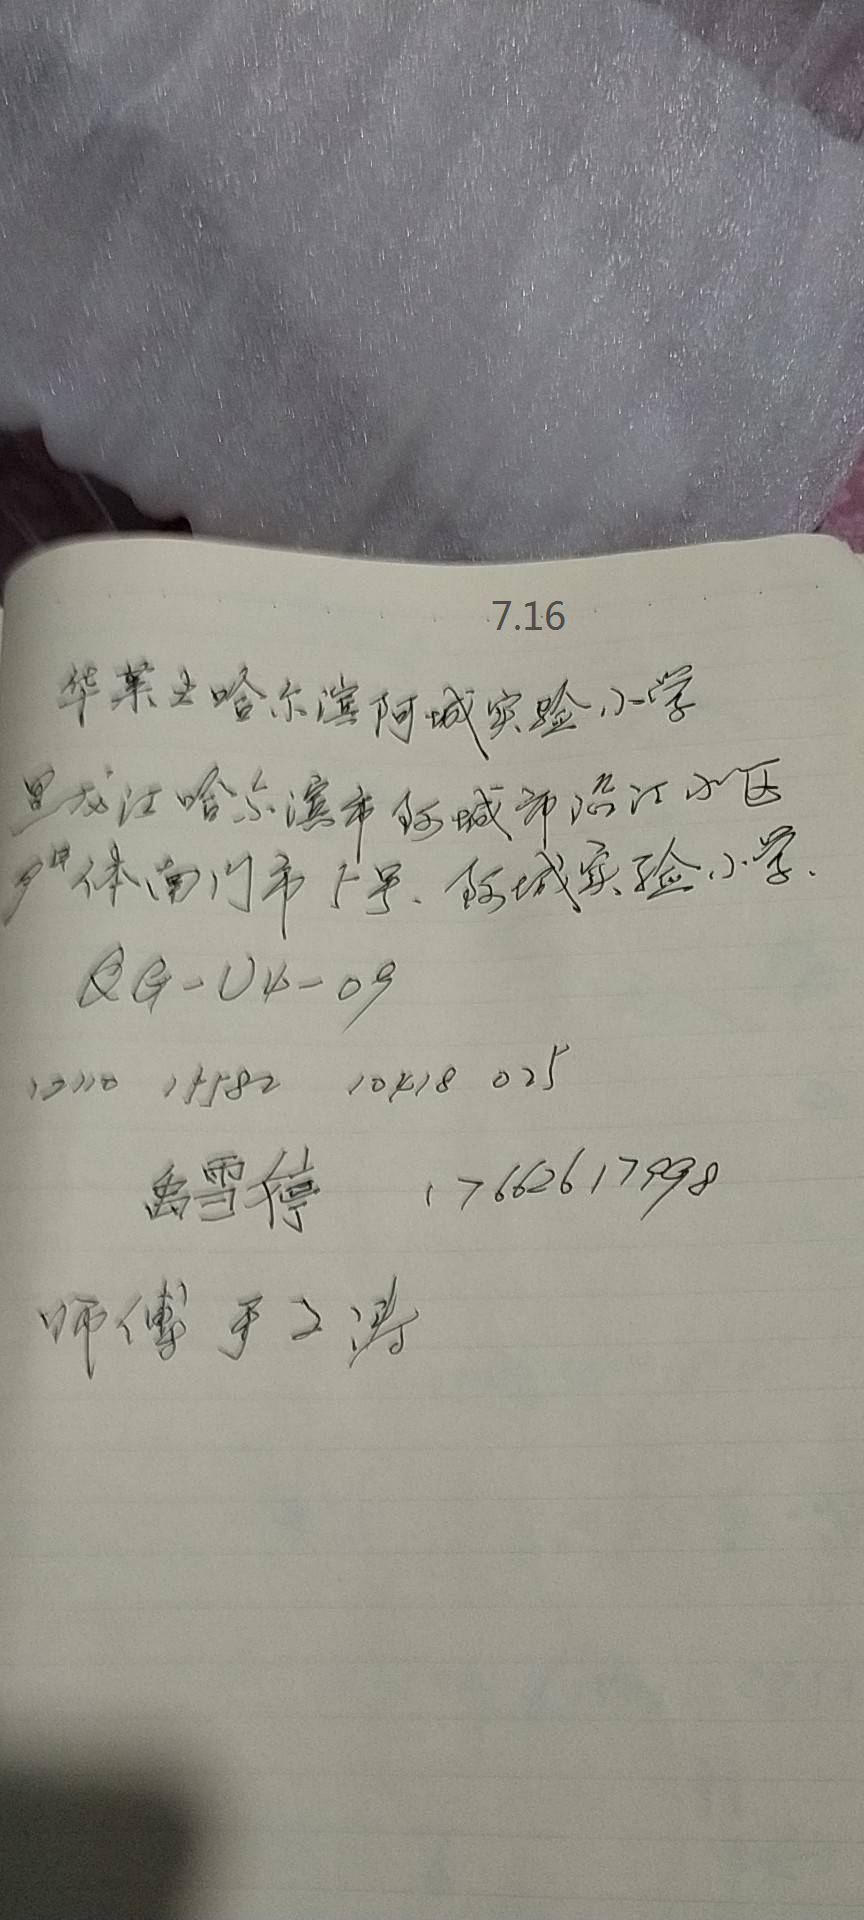 7.16
华莱士哈尔滨阿城实验小学
黑龙江哈尔滨市阿城市沿江小区
体南门市5号、阿城实验小学、
QG-U4-09
025
禹雪停 17662617998
师傅 于文涛